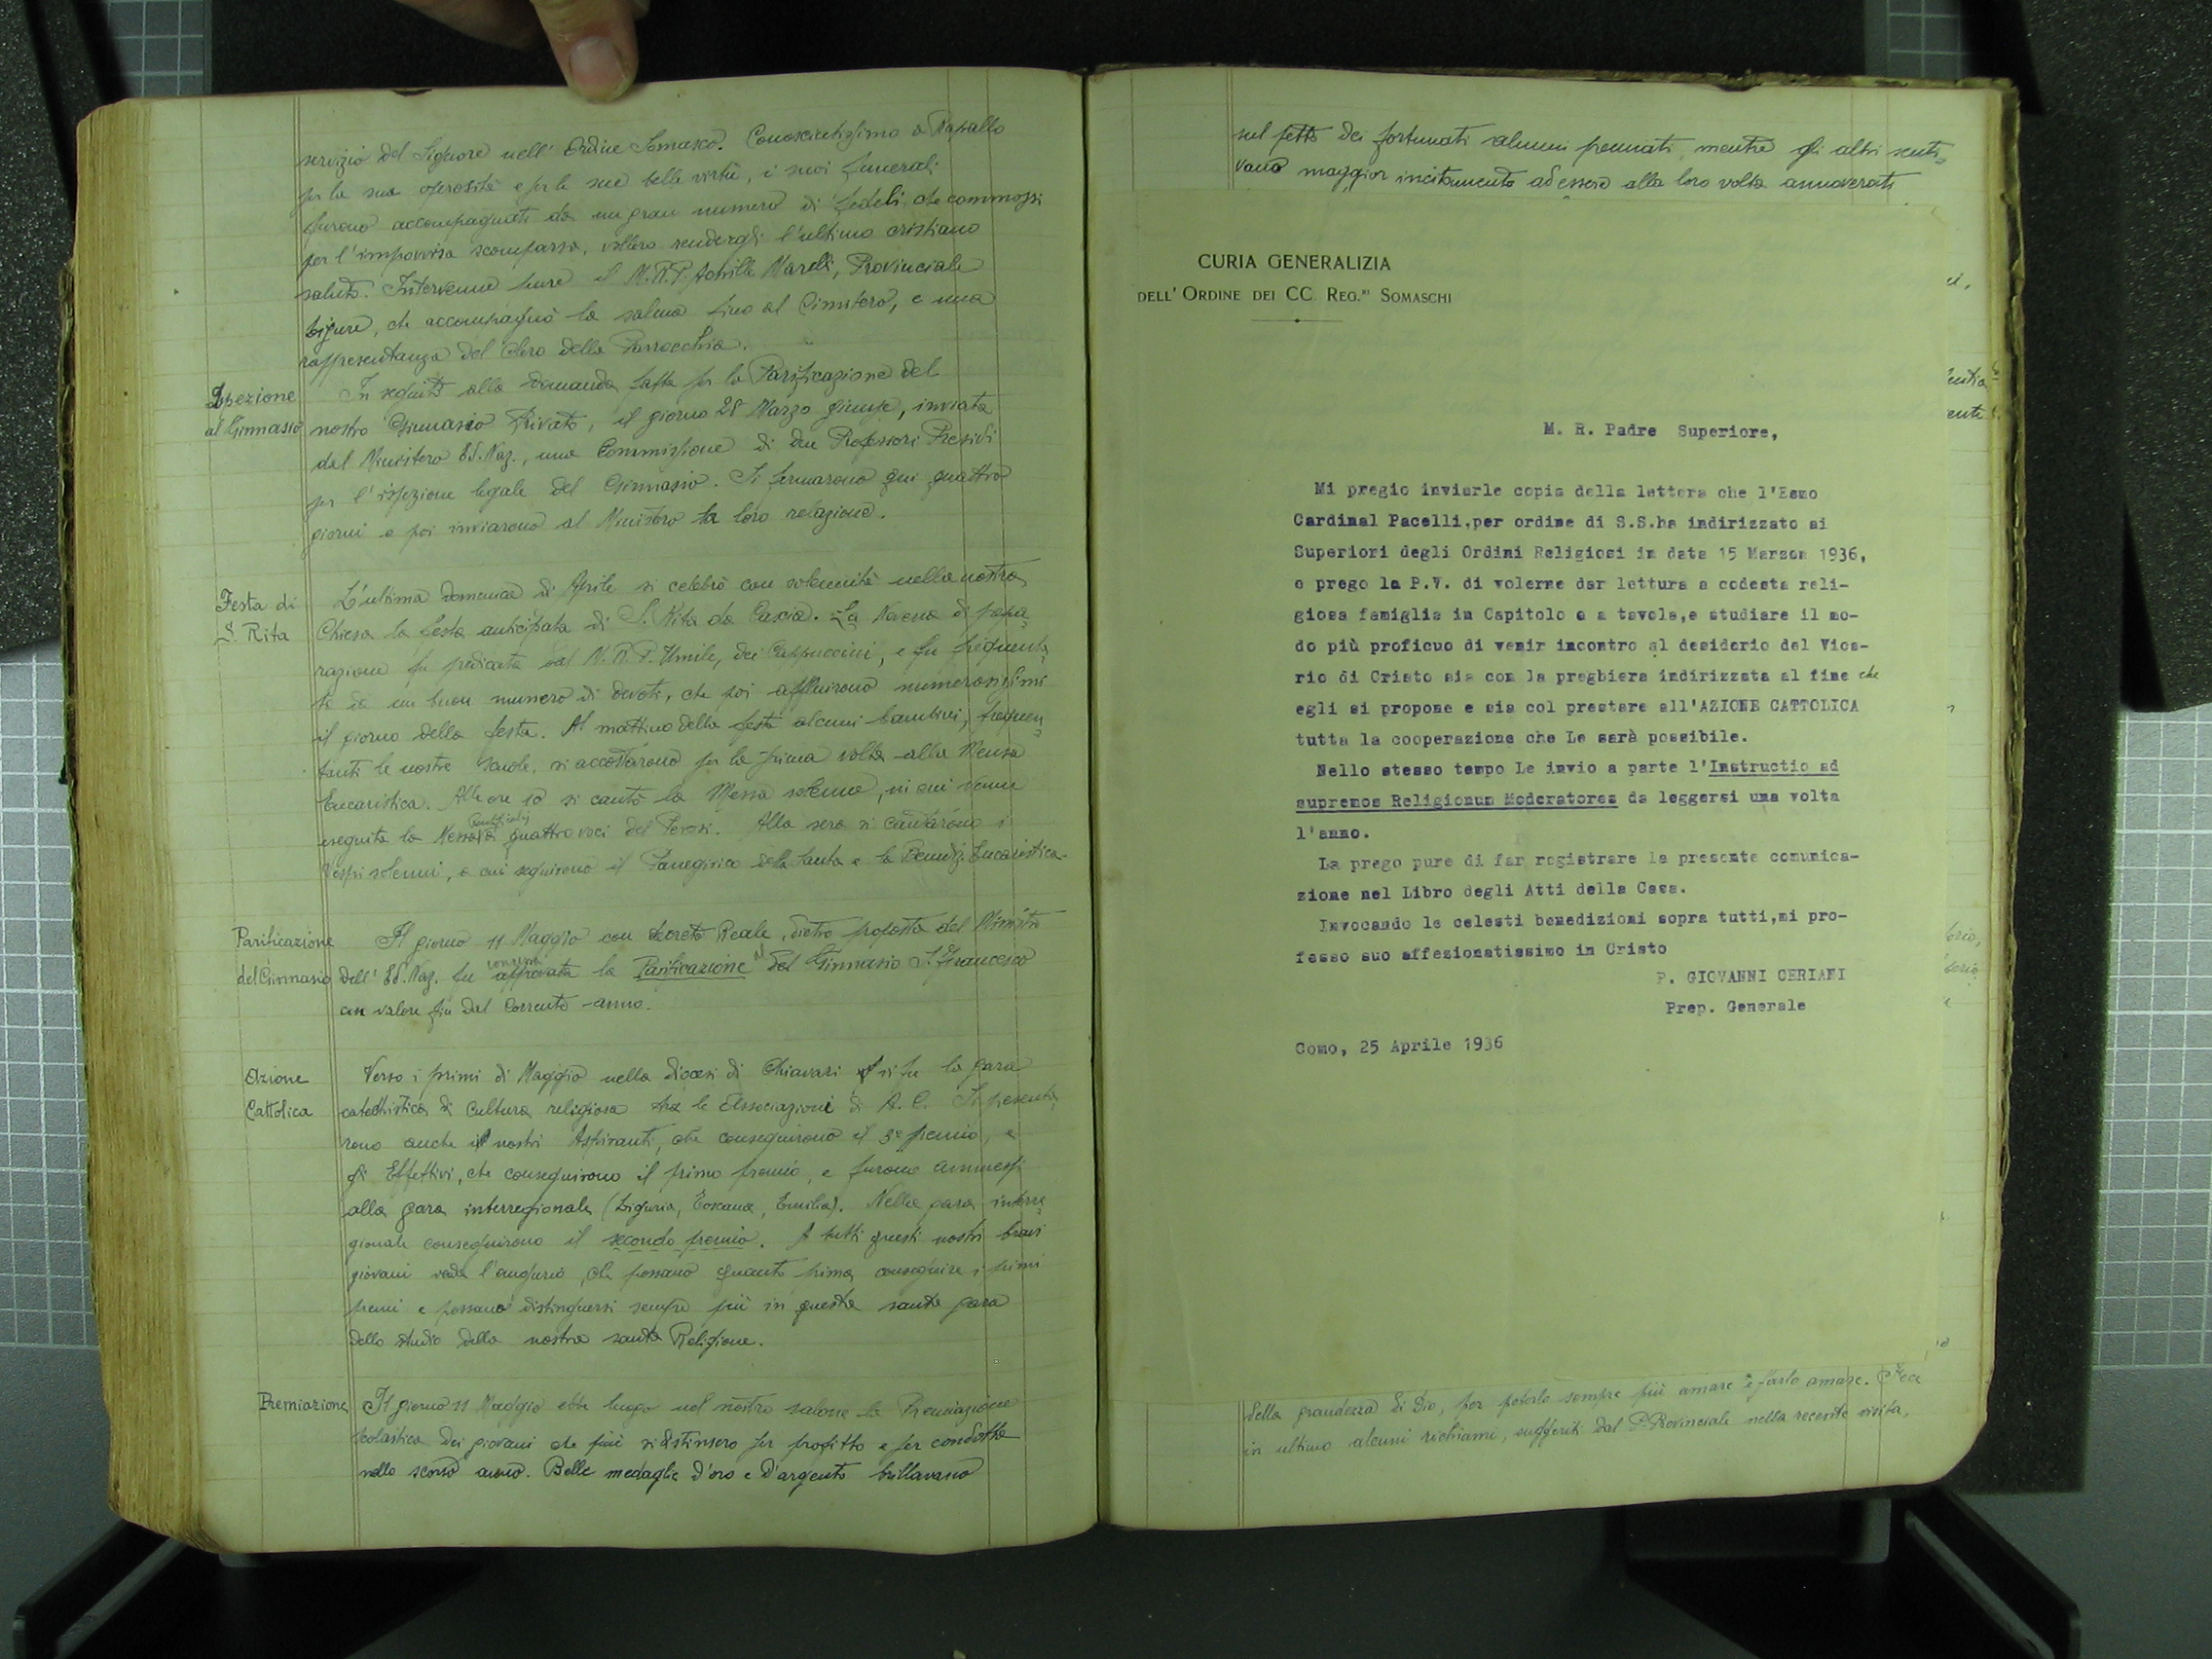 servizio del Signore nell' Ordine Somasco. Conosciutissimo a Rapallo
per la sua operosità e per le sue belle virtù, i suoi funerali
furono accompagnati da un gran numero di fedeli che commossi
per l'improvvisa scomparsa, vollero rendergli l'ultimo cristiano
saluto. Intervenne pure il M.R.P. Achille Marelli, Provinciale
Ligure, che accompagnò la salma fino al Cimitero, e una
rappresentanza del Clero della Parrocchia.
Ispezione
al Ginnasio
In seguito alla domanda fatta per la Parificazione del
nostro Ginnasio Privato, il giorno 28 Marzo giunse, inviata
dal Ministero Ed. Naz., una Commissione di due Professori Presidi
per l'ispezione legale del Ginnasio. Si fermarono qui quattro
giorni e poi inviarono al Ministero la loro relazione.
Festa di
S. Rita
L'ultima domenica di Aprile si celebrò con solennità nella nostra
Chiesa la festa anticipata di S. Rita da Cascia. La Novena di prepa-
razione fu predicata dal M.R.P. Umile, dei Cappuccini, e fu frequenta-
ta da un buon numero di devoti, che poi affluirono numerosissimi
il giorno della festa. Al mattino della festa alcuni bambini, frequen-
tanti le nostre scuole, si accostarono per la prima volta alla Mensa
Eucaristica. Alle ore 10 si cantò la Messa solenne, in cui venne
eseguita la Messa Pontificalis a quattro voci del Perosi. Alla sera si cantarono i
Vespri solenni, a cui seguirono il Panegirico della Santa e la Benediz. Eucaristica.
Parificazione
del Ginnasio
Il giorno 11 Maggio con decreto Reale, dietro proposta del Ministro
Dell' Ed. Naz. fu approvata la Parificazione del Ginnasio S. Francesco
con valore fin dal corrente anno.
Azione
Cattolica
Verso i primi di Maggio nella diocesi di Chiavari si fu la gara
catechistica di cultura religiosa tra le Associazioni di A. C. Si presenta-
rono anche i nostri Aspiranti, che conseguirono il 3° premio, e
gli Effettivi, che conseguirono il primo premio, e furono ammessi
alla gara interregionale (Liguria, Toscana, Emilia). Nella gara interre-
gionale conseguirono il secondo premio. A tutti questi nostri bravi
giovani vada l'augurio, che possano quanto prima conseguire i primi
premi e possano distinguersi sempre più in questa santa gara
dello studio della nostra santa Religione.
Premiazione
Il giorno 11 Maggio ebbe luogo nel nostro salone la Premiazione
scolastica dei giovani che più si distinsero per profitto e per condotta
nello scorso anno. Belle medaglie d'oro e d'argento brillavano
sul petto dei fortunati alunni premiati mentre gli altri senti-
vano maggior incitamento ad essere alla loro volta annoverati
CURIA GENERALIZIA
DELL' ORDINE DEI CC. REG.RI SOMASCHI
M. R. Padre Superiore,
Mi pregio inviarle copia della lettera che l'Esmo
Cardinal Pacelli,per ordine di S.S.ha indirizzato ai
Superiori degli Ordini Religiosi in data 15 Marzom 1936,
e prego la P.V. di volerne dar lettura a codesta reli-
giosa famiglia in Capitolo e a tavola,e studiare il mo-
do più proficuo di venir incontro al desiderio del Vica-
rio di Cristo sia con la preghiera indirizzata al fine che
egli si propone e sia col prestare all'AZIONE CATTOLICA
tutta la cooperazione che Le sarà possibile.
Nello stesso tempo Le invio a parte l'Instructio ad
supremos Religionum Moderatores da leggersi una volta
l'anno.
La prego pure di far registrare la presente comunica-
zione nel Libro degli Atti della Casa.
Invocando le celesti benedizioni sopra tutti,mi pro-
fesso suo affezionatissimo in Cristo
P. GIOVANNI CERIANI
Prep. Generale
Como, 25 Aprile 1936
della grandezza di Dio, per poterlo sempre più amare e farlo amare. Fece
in ultimo alcuni richiami, suggeriti dal P. Provinciale nella recente visita.